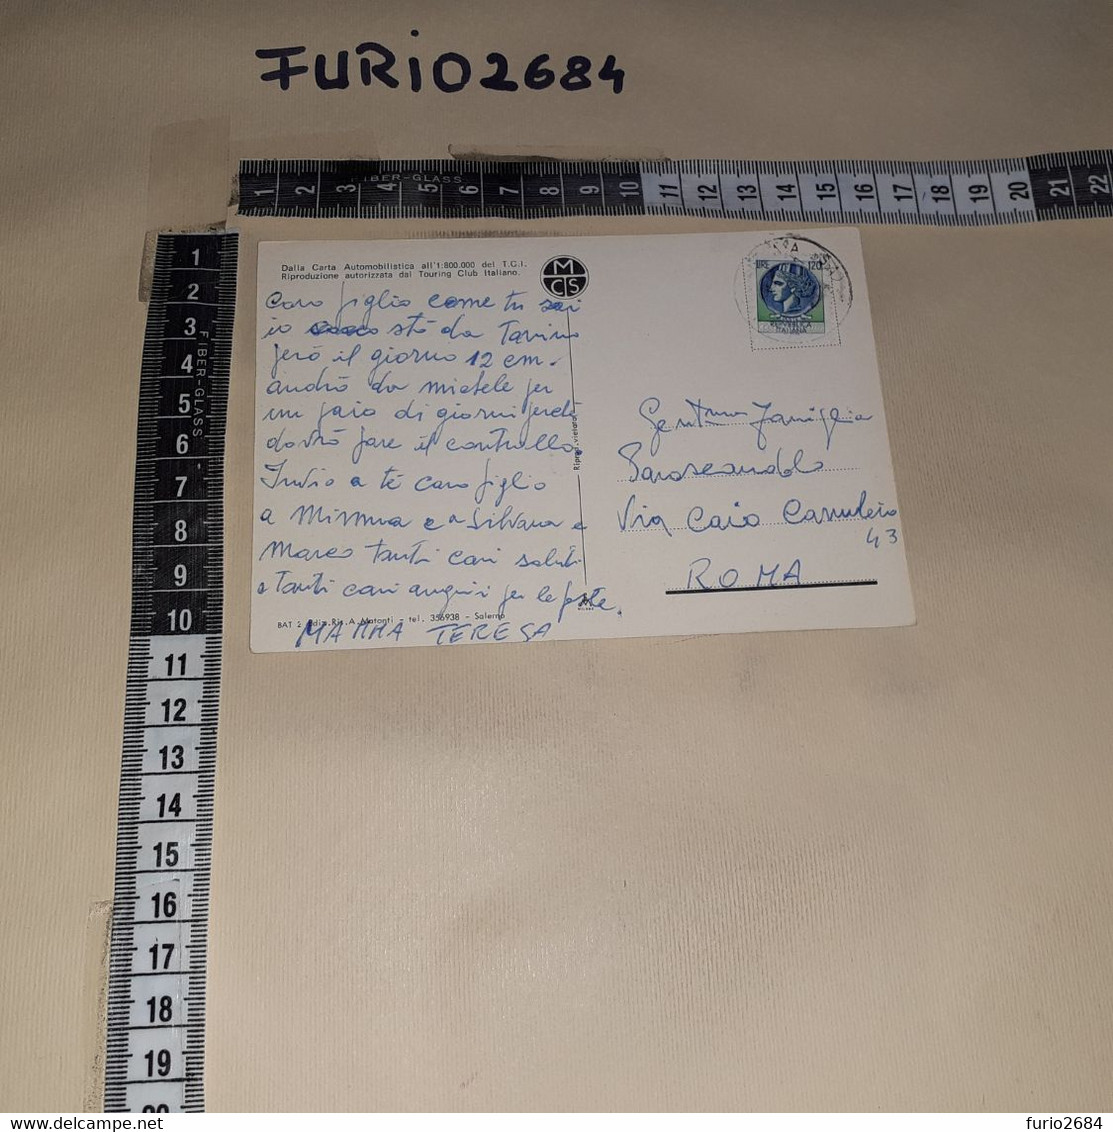 FURIO2684
FIBER-GLASS
1 2 3 4 5 6 7 8 9 10 11 12 13 14 15 16 17 18 19 20 21 22
1
2
3
FIBER-GLASS
4
5
6
7
8
9
10
11
12
13
14
15
16
17
18
19
20
Dalla Carta Automobilistica all'1:800.000 del T.C.I.
Riproduzione autorizzata dal Touring Club Italiano.
M
CS
LIRE 120
ITALIANA
Caro figlio come tu sai
io sto da Tanino
però il giorno 12 cm.
andrò da michele per
un paio di giorni perchè
dovrò fare il controllo.
Invio a te caro figlio
a Mimma e a Silvana e
Marco tanti cari saluti
e tanti cari auguri per le feste.
MAMMA TERESA
Riprod. vietata
BAT 2 Ediz. Ris. A. Matonti - tel. 356938 - Salerno
Gent.ma Famiglia
Via Caio Canuleio
43
ROMA
furio2684